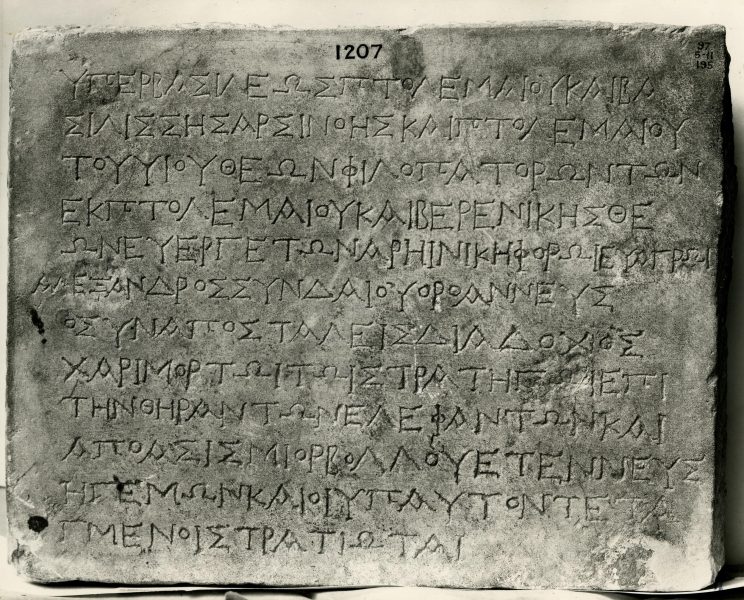 1207
97
5-11
195
ΥΠΕΡΒΑΣΙΛΕΩΣΠΤΟΛΕΜΑΙΟΥΚΑΙΒΑ
ΣΙΛΙΣΣΗΣΑΡΣΙΝΟΗΣΚΑΙΠΤΟΛΕΜΑΙΟΥ
ΤΟΥΥΙΟΥΘΕΩΝΦΙΛΟΠΑΤΟΡΩΝΤΩΝ
ΕΚΠΤΟΛΕΜΑΙΟΥΚΑΙΒΕΡΕΝΙΚΗΣΘΕ
ΩΝΕΥΕΡΓΕΤΩΝΑΡΗΙΝΙΚΗΦΟΡΩΙΕΥΑΓΡΩΙ
ΑΛΕΞΑΝΔΡΟΣΣΥΝΔΑΙΟΥΟΡΟΑΝΝΕΥΣ
ΟΣΥΝΑΠΟΣΤΑΛΕΙΣΔΙΑΔΟΧΟΣ
ΧΑΡΙΜΟΡΤΩΙΤΩΙΣΤΡΑΤΗΓΩΙΕΠΙ
ΤΗΝΘΗΡΑΝΤΩΝΕΛΕΦΑΝΤΩΝΚΑΙ
ΑΠΟΑΣΙΣΜΙΟΡΒΟΛΛΟΥΕΤΕΝΝΕΥΣ
ΗΓΕΜΩΝΚΑΙΟΙΥΠΑΥΤΟΝΤΕΤΑ
ΓΜΕΝΟΙΣΤΡΑΤΙΩΤΑΙ